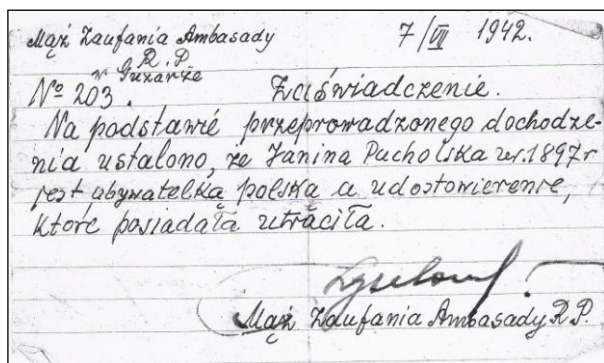 Mąż Zaufania Ambasady
R. P
w Guzarze
7/VII 1942.
Nº 203.
Zaświadczenie.
Na podstawie przeprowadzonego dochodze-
nia ustalono, że Janina Pacholska ur. 1897 r
jest obywatelką polską a udostowierenie,
które posiadała utraciła.
Mąż Zaufania Ambasady R.P.